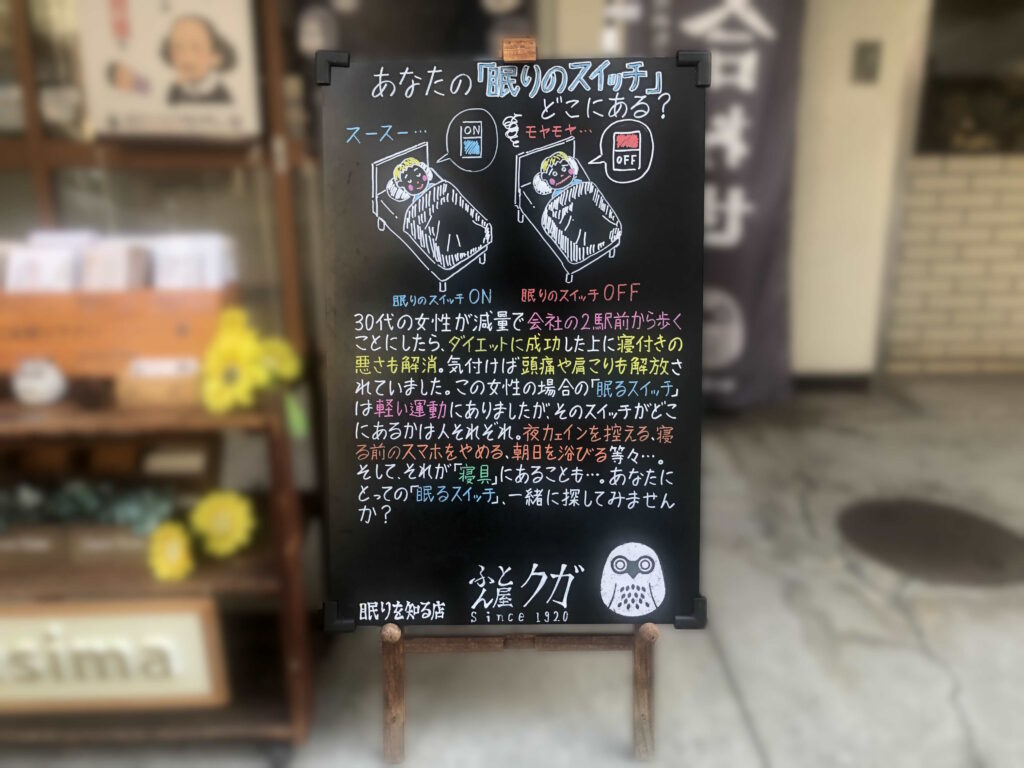 あなたの「眠りのスイッチ」
どこにある？
スースー…
ON
モヤモヤ…
OFF
眠りのスイッチ ON
眠りのスイッチ OFF
30代の女性が減量で会社の2駅前から歩く
ことにしたら、ダイエットに成功した上に寝付きの
悪さも解消。気付けば頭痛や肩こりも解放さ
れていました。この女性の場合の「眠るスイッチ」
は軽い運動にありましたが、そのスイッチがどこ
にあるかは人それぞれ。夜カェインを控える、寝
る前のスマホをやめる、朝日を浴びる等々…。
そして、それが「寝具」にあることも…。あなたに
とっての「眠るスイッチ」、一緒に探してみません
か？
眠りを知る店
ふとん屋クガ
Since 1920
合わせ
sima